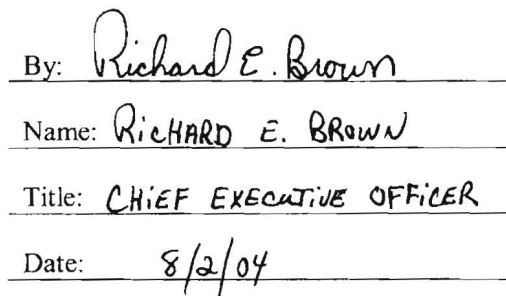 By: Richard E. Brown
Name: RiCHARD E. BROWN
Title: CHiEF EXECUTiVE OFFiCER
Date: 8/2/04